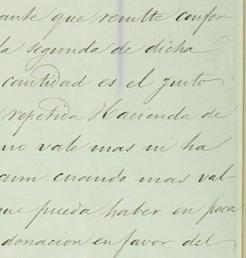 ante que resulte confor
la segunda de dicha
cantidad es el justo
repetida Hacienda de
no vale mas ni ha
aun cuando mas val
que pueda haber en poca
donacion en favor del